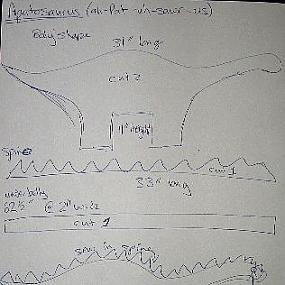 Apatosaurus (ah-Pat-uh-sawr-us)
Body shape
31" long
cut 2
11" height
Spine
cut 1
33" long
under belly
62½" @ 2" wide
cut 1
sew in spine